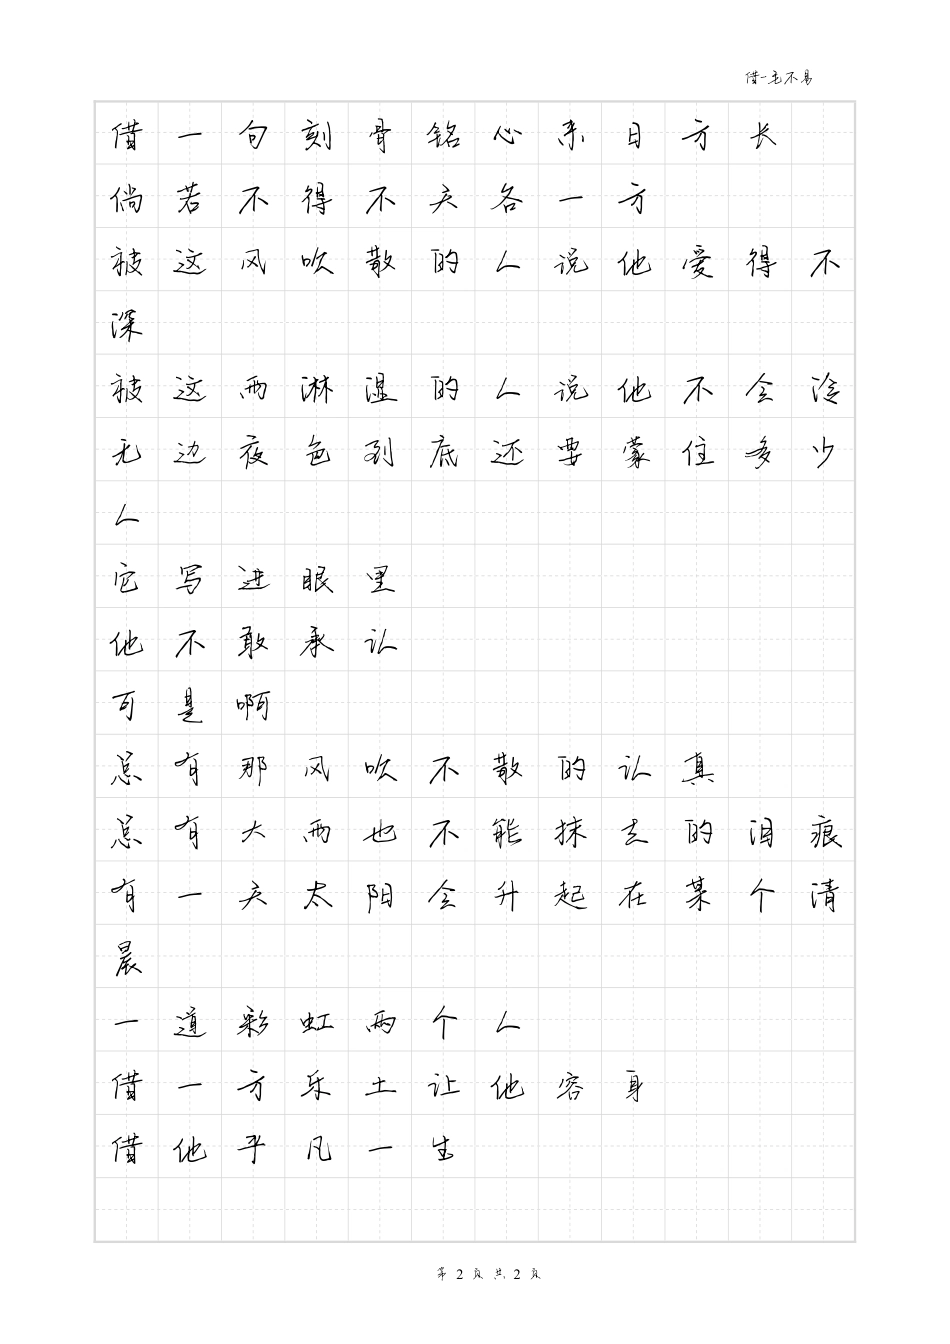 借-毛不易
借一句刻骨铭心来日方长
倘若不得不天各一方
被这风吹散的人说他爱得不
深
被这雨淋湿的人说他不会冷
无边夜色到底还要蒙住多少
人
它写进眼里
他不敢承认
可是啊
总有那风吹不散的认真
总有大雨也不能抹去的泪痕
有一天太阳会升起在某个清
晨
一道彩虹两个人
借一方乐土让他容身
借他平凡一生
第 2 页 共 2 页